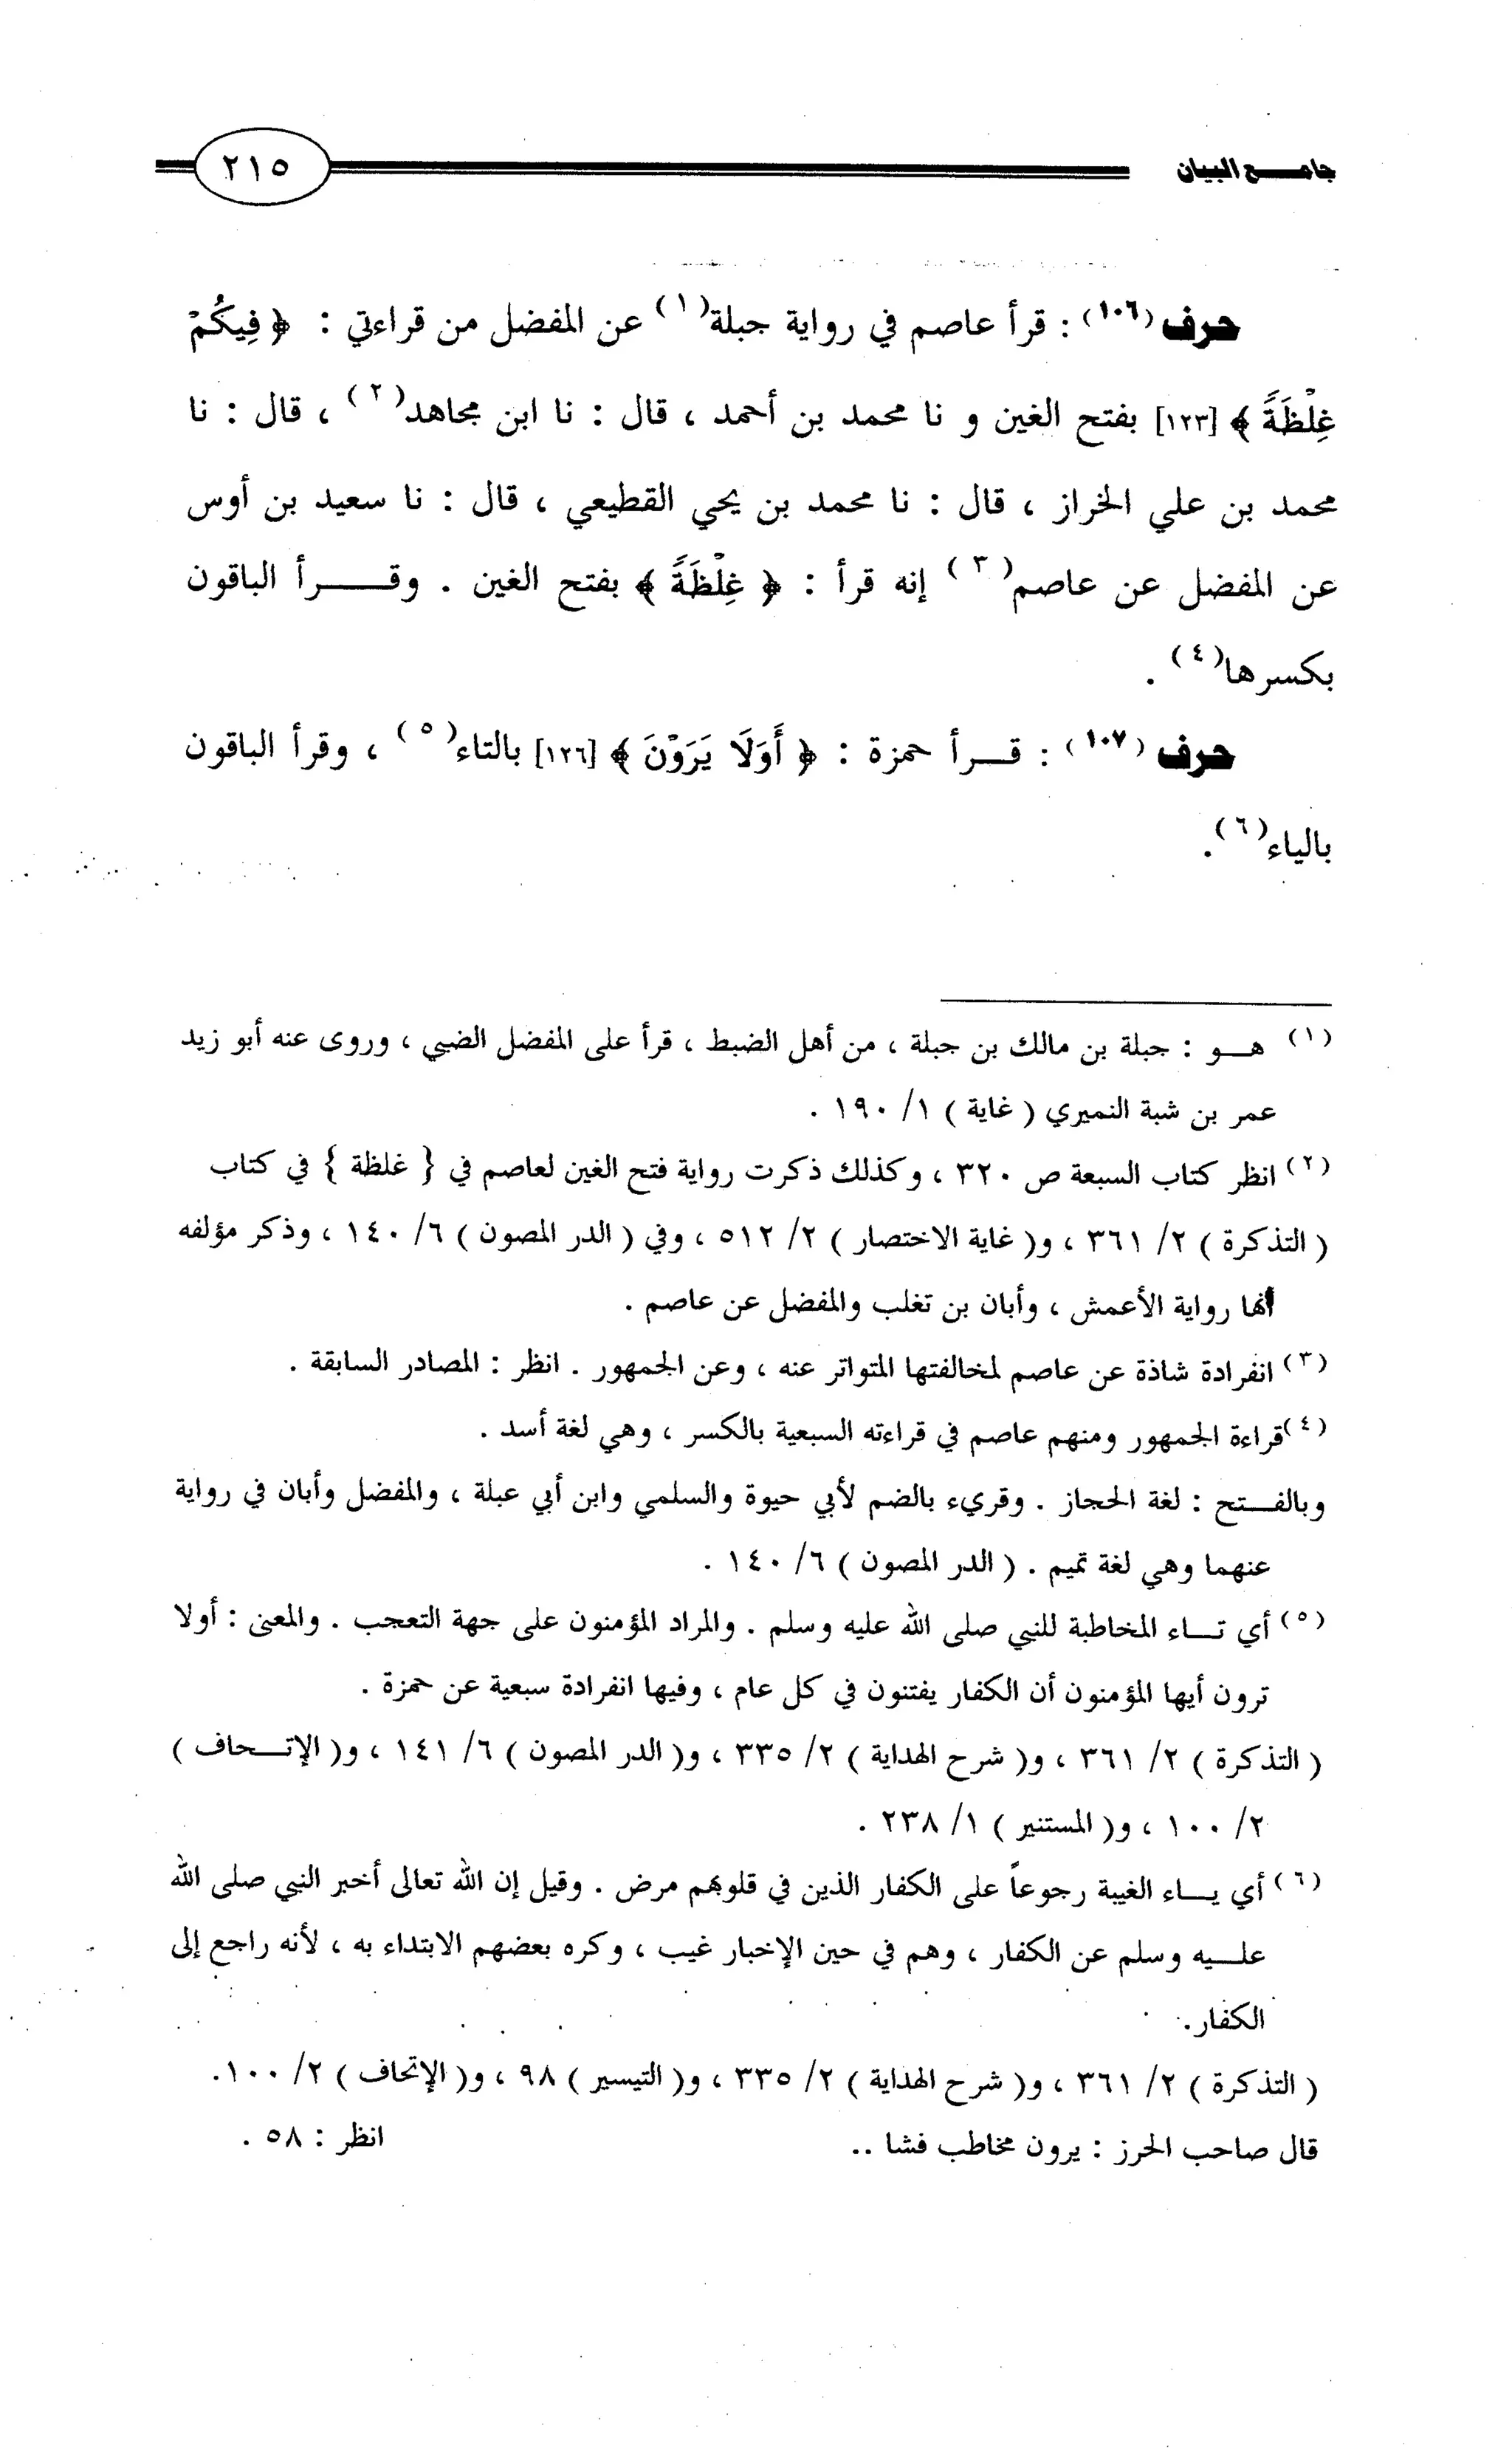 جامع البيان ٢١٥
حرف (١٠٦) : قرأ عاصم في رواية جبلة(١) عن المفضل من قراءتي : ﴿ فِيكُمْ
غِلْظَةً ﴾ [١٢٣] بفتح الغين و نا محمد بن أحمد ، قال : نا ابن مجاهد(٢) ، قال : نا
محمد بن علي الخراز ، قال : نا محمد بن يحي القطيعي ، قال : نا سعيد بن أوس
عن المفضل عن عاصم(٣) إنه قرأ : ﴿ غِلْظَةً ﴾ بفتح الغين . وقرأ الباقون
بكسرها(٤) .
حرف (١٠٧) : قرأ حمزة : ﴿ أَوَلَا يَرَوْنَ ﴾ [١٢٦] بالتاء(٥) ، وقرأ الباقون
بالياء(٦).
(١) هو : جبلة بن مالك بن جبلة ، من أهل الضبط ، قرأ على المفضل الضبي ، وروى عنه أبو زيد
عمر بن شبة النميري ( غاية ) ١/ ١٩٠ .
(٢) انظر كتاب السبعة ص ٣٢٠ ، وكذلك ذكرت رواية فتح الغين لعاصم في { غلظة } في كتاب
( التذكرة ) ٢/ ٣٦١ ، و( غاية الاختصار ) ٢/ ٥١٢ ، وفي ( الدر المصون ) ٦/ ١٤٠ ، وذكر مؤلفه
أنها رواية الأعمش ، وأبان بن تغلب والمفضل عن عاصم .
(٣) انفرادة شاذة عن عاصم لمخالفتها المتواتر عنه ، وعن الجمهور . انظر : المصادر السابقة .
(٤) قراءة الجمهور ومنهم عاصم في قراءته السبعية بالكسر ، وهي لغة أسد .
وبالفتح : لغة الحجاز . وقريء بالضم لأبي حيوة والسلمي وابن أبي عبلة ، والمفضل وأبان في رواية
عنهما وهي لغة تميم . ( الدر المصون ) ٦/ ١٤٠ .
(٥) أي تاء المخاطبة للنبي صلى الله عليه وسلم . والمراد المؤمنون على جهة التعجب . والمعنى : أولا
ترون أيها المؤمنون أن الكفار يفتنون في كل عام ، وفيها انفرادة سبعية عن حمزة .
( التذكرة ) ٢/ ٣٦١ ، و( شرح الهداية ) ٢/ ٣٣٥ ، و( الدر المصون ) ٦/ ١٤١ ، و( الإتحاف )
٢/ ١٠٠ ، و( المستنير ) ١/ ٢٣٨ .
(٦) أي ياء الغيبة رجوعاً على الكفار الذين في قلوبهم مرض . وقيل إن الله تعالى أخبر النبي صلى الله
عليه وسلم عن الكفار ، وهم في حين الإخبار غيب ، وكره بعضهم الابتداء به ، لأنه راجع إلى
الكفار.
( التذكرة ) ٢/ ٣٦١ ، و( شرح الهداية ) ٢/ ٣٣٥ ، و( التيسير ) ٩٨ ، و( الإتحاف ) ٢/ ١٠٠.
قال صاحب الحرز : يرون مخاطب فشا .. انظر : ٥٨ .